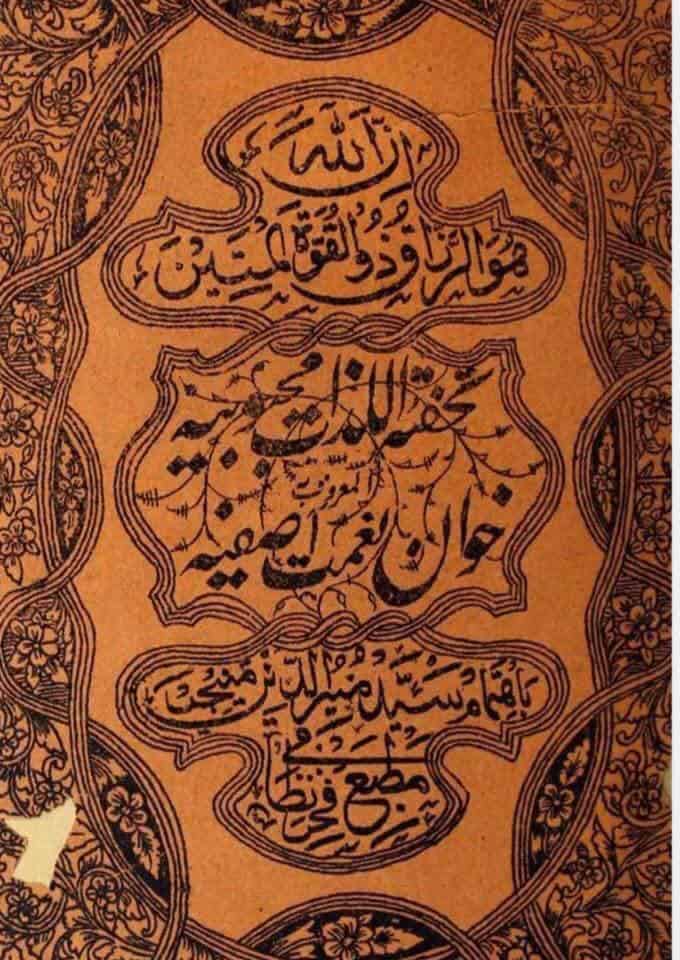 إِنَّ اللهَ
هُوَ الرَّزَّاقُ ذُو الْقُوَّةِ الْمَتِينُ
تحفتہ اللذات محبوبیہ
المعروف
خوان نعمت آصفیہ
باہتمام سیّد منیر الدین منیجر
مطبع فخر نظامی